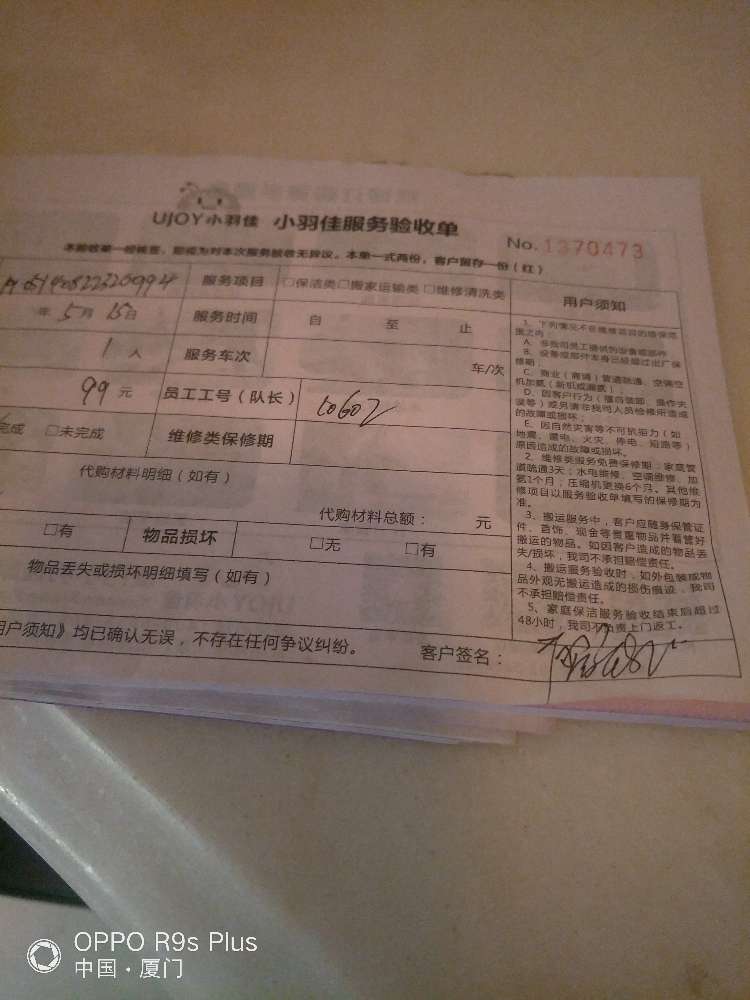 UJOY小羽佳 小羽佳服务验收单
No. 1370473
本验收单一经核签，即视为对本次服务验收无异议。本单一式两份，客户留存一份（红）
服务项目 □保洁类□搬家运输类 □维修清洗类
用户须知
年 5月 15日 服务时间 自 至 止
1人 服务车次 车/次
99元 员工工号（队长）
完成 □未完成 维修类保修期
代购材料明细（如有）
代购材料总额： 元
□有 物品损坏 □无 □有
物品丢失或损坏明细填写（如有）
用户须知》均已确认无误，不存在任何争议纠纷。 客户签名：
1、下列情况不在维修项目的维保范
围之内：
A、非我司员工提供的设备或部件
B、设备或部件本身已经超过出厂保
修期；
C、商业（商铺）管道疏通、空调空
机加氨（新机或漏氨）
D、因客户行为（擅自装卸、操作失
误等）或另请非我司人员检修所造成
的故障或损坏；
E、因自然灾害等不可抗拒力（如
地震、雷电、火灾、停电、短路等）
原因造成的故障或损坏。
2、维修类服务免费保修期：家庭管
道疏通3天；水电维修、空调维修、加
氨1个月；压缩机更换6个月。其他维
修项目以服务验收单填写的保修期为
准。
3、搬运服务中，客户应随身保管证
件、首饰、现金等贵重物品并看管好
搬运的物品。如因客户造成的物品丢
失/损坏，我司不承担赔偿责任。
4、搬运服务验收时，如外包装或物
品外观无搬运造成的损伤痕迹，我司
不承担赔偿责任。
5、家庭保洁服务验收结束后超过
48小时，我司不负责上门返工。
OPPO R9s Plus
中国·厦门